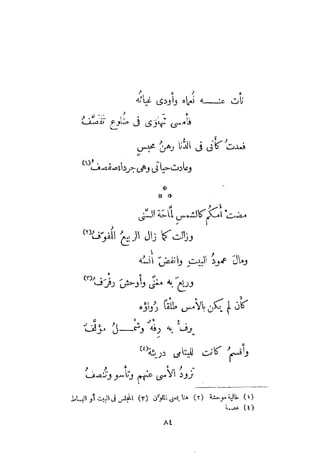 نأت عنه نعماه وأودى غياثه
فأمسى تهاوى فى ضلوع تقصف
فعدت كأنى فى الدنا رهن محبس
وعادت حياتى وهى جرداء صفصف (١)
*
* *
مضت أمكم كالشمس لماحة السنى
وزالت كما زال الربيع المفوف (٢)
ومال عمود البيت وانفض أنسه
وريع به مغنى وأوحش رفرف (٣)
كأن لم يكن بالأمس طلقًا رواؤه
يرف به رفه وشمل مؤلف
وأقسم كانت لليتامى دريئة (٤)
تزود الأسى عنهم وتأسو وتنصف
(١) خالية موحشة (٢) هنا بمعنى الملون (٣) المجلس فى البيت أو البساط
(٤) عصمة
٨٤